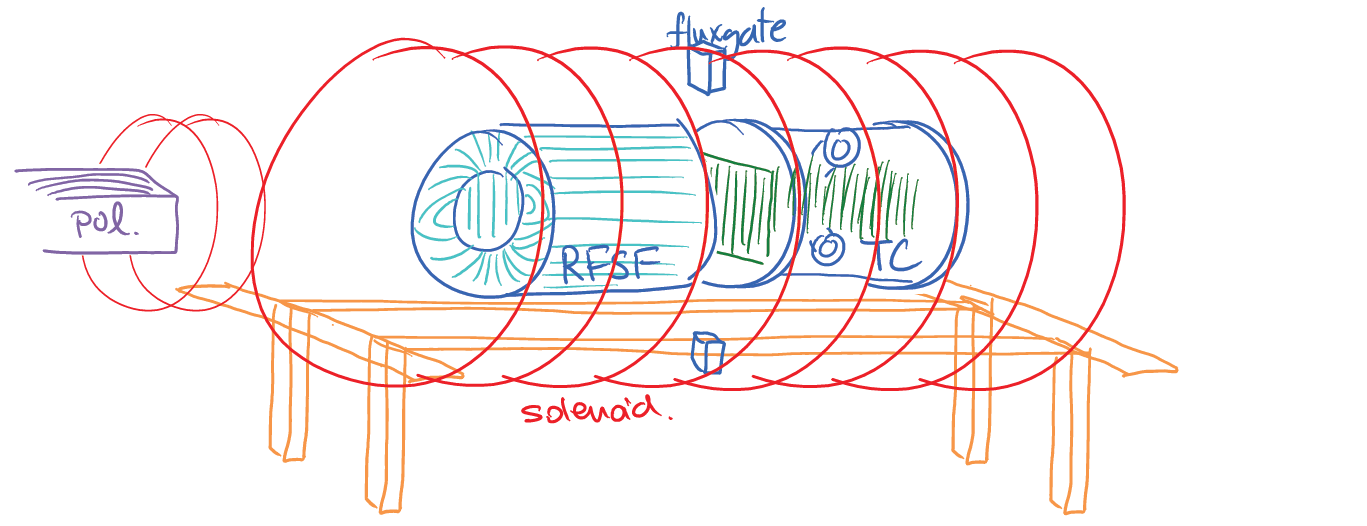 fluxgate
pol.
RFSF
TC
solenoid.